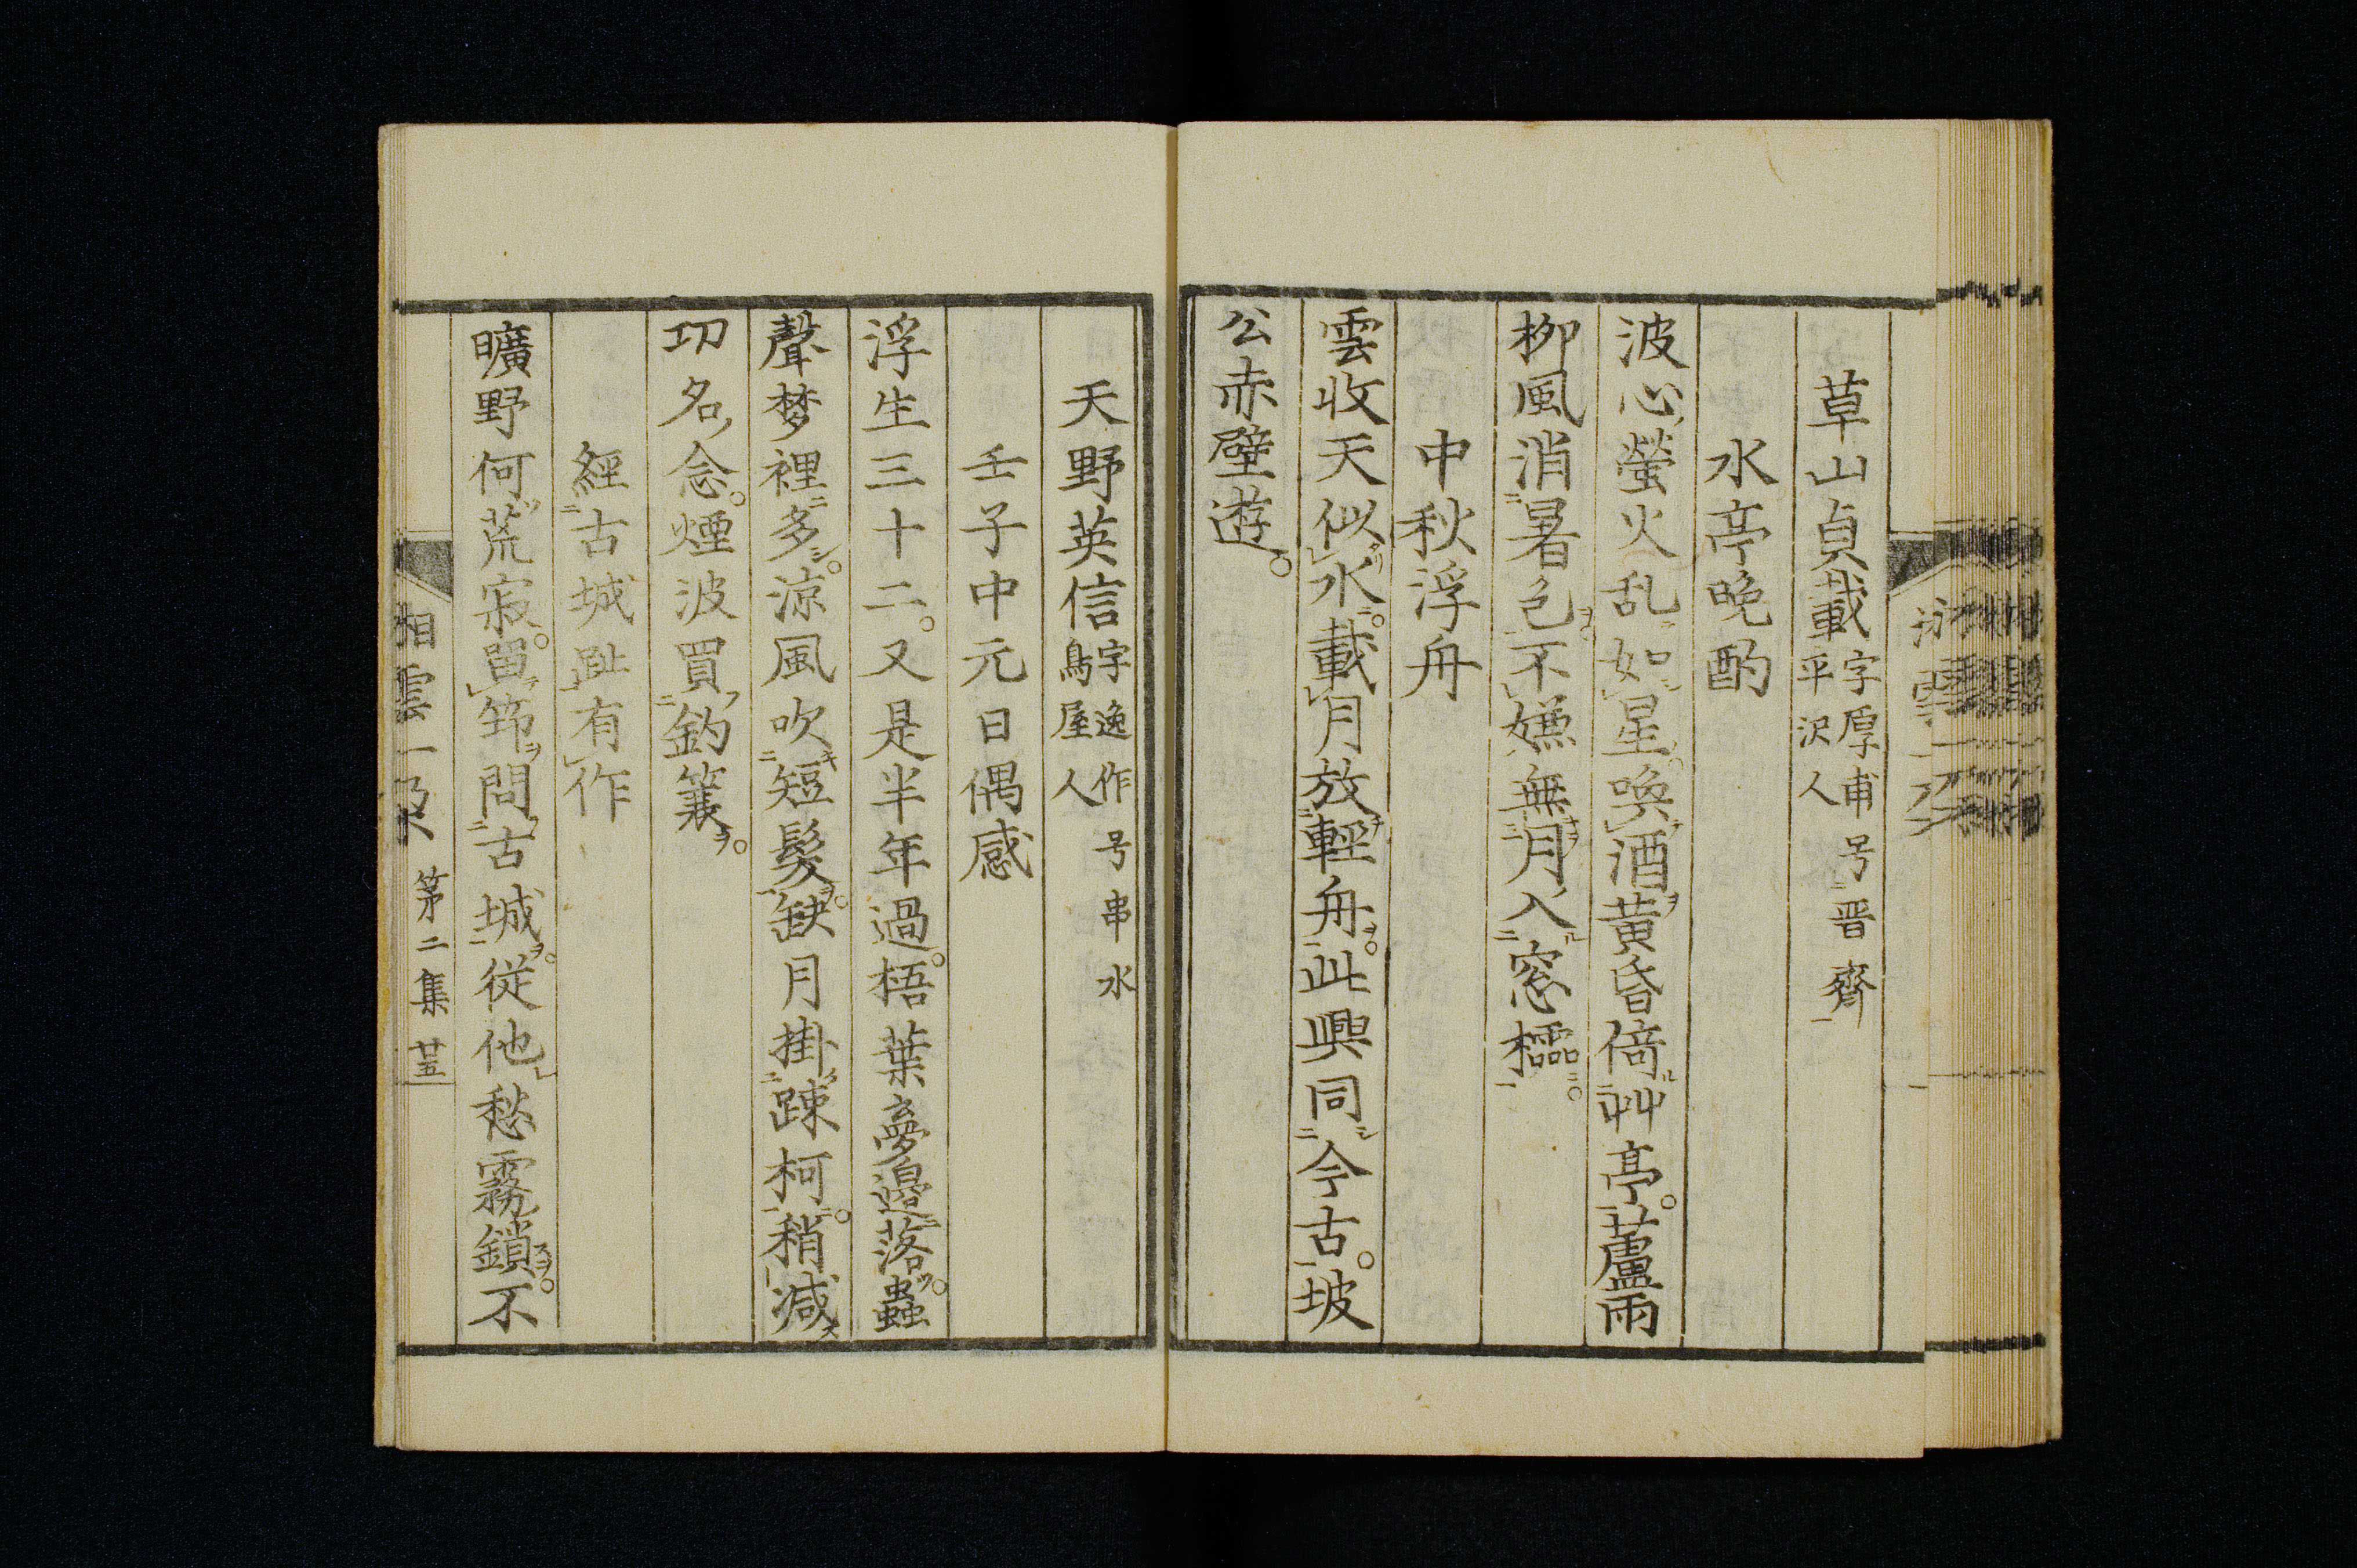 草山貞載 字厚甫号晋齋 平沢人
水亭晩酌
波心螢火乱如星。喚酒黄昏倚艸亭。蘆雨
柳風消暑色。不嫌無月入窓櫺。
中秋浮舟
雲收天似水。載月放輕舟。此興同今古。坡
公赤壁遊。
天野英信 字逸作号串水 鳥屋人
壬子中元日偶感
浮生三十二。又是半年過。梧葉夢邉落。蟲
聲梦裡多。涼風吹短髪。缺月掛踈柯。稍減
功名念。煙波買釣簑。
經古城趾有作
曠野何荒寂。畱笻問古城。従他愁霧鎖。不
相雲一𠬧 第二集 廿五